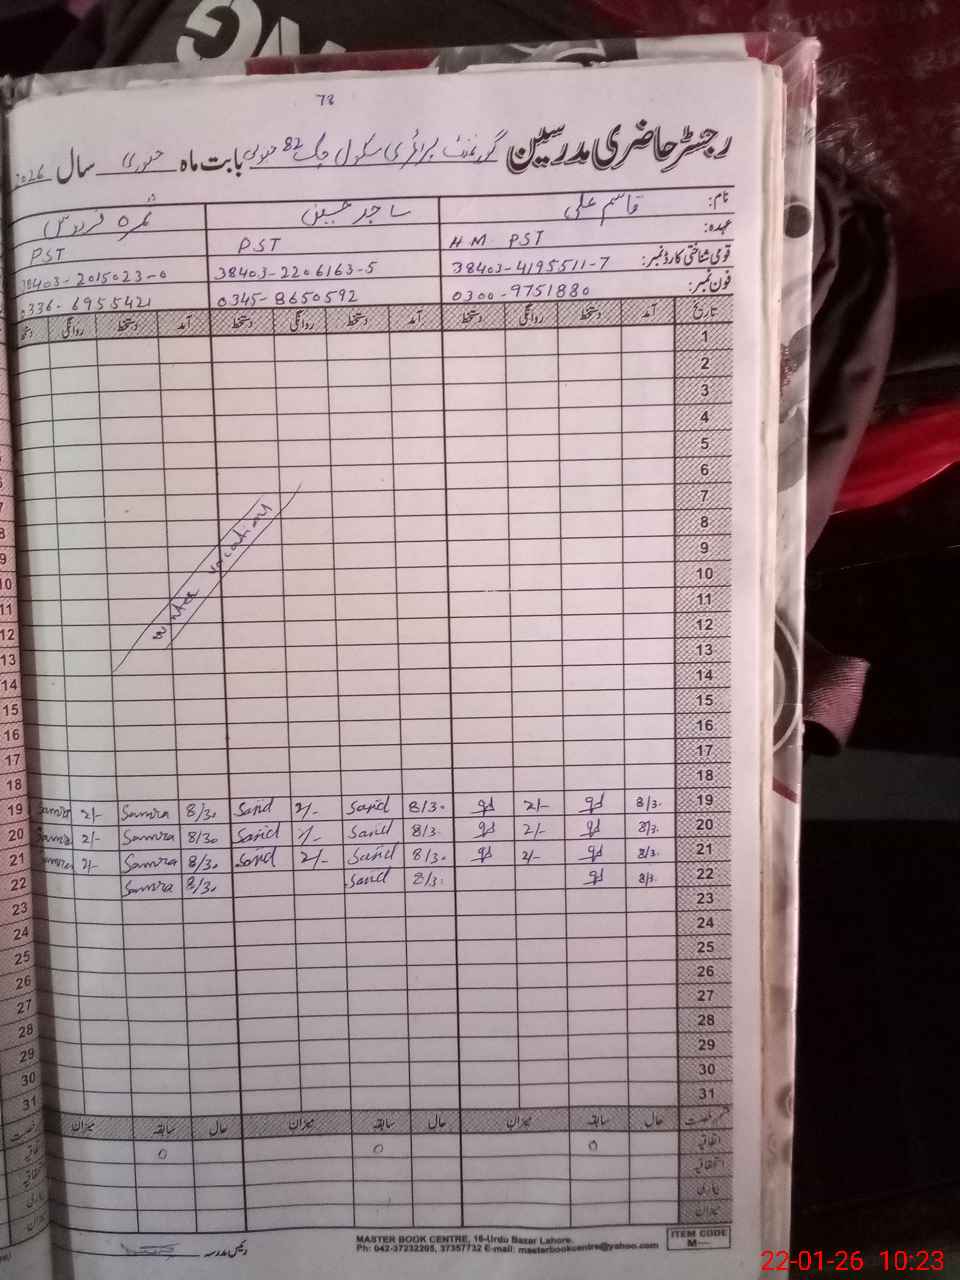 73
رجسٹر حاضری مدرسین گورنمنٹ پرائمری سکول چک 82 جنوبی بابت ماہ جنوری سال 2026
نام: قاسم علی ساجد حسین ثمرہ فردوس
عہدہ: H.M PST PST PST
قومی شناختی کارڈ نمبر: 38403-4195511-7 38403-2206163-5 38403-2015023-0
فون نمبر: 0300-9751880 0345-8650592 0336-6955421
تاریخ آمد دستخط روانگی دستخط آمد دستخط روانگی دستخط آمد دستخط روانگی دستخط
1
2
3
4
5
6
7
8
9
10
11
12
13
14
15
16
17
18
winter vacations
19 8/3. 2/- 8/3. Sajid 2/- Sajid 8/30 Samra 2/- Samra
20 8/3. 2/- 8/3. Sajid 2/- Sajid 8/30 Samra 2/- Samra
21 8/3. 2/- 8/3. Sajid 2/- Sajid 8/30 Samra 2/- Samra
22 8/3. 8/3. Sajid 8/30 Samra
23
24
25
26
27
28
29
30
31
رخصت حال سابقہ میزان حال سابقہ میزان حال سابقہ میزان
اتفاقیہ 0 0 0
استحقاقیہ
بیماری
میزان
رئیس مدرسہ
MASTER BOOK CENTRE, 16-Urdu Bazar Lahore.
Ph: 042-37232205, 37357732 E-mail: masterbookcentre@yahoo.com
ITEM CODE
M—
22-01-26 10:23